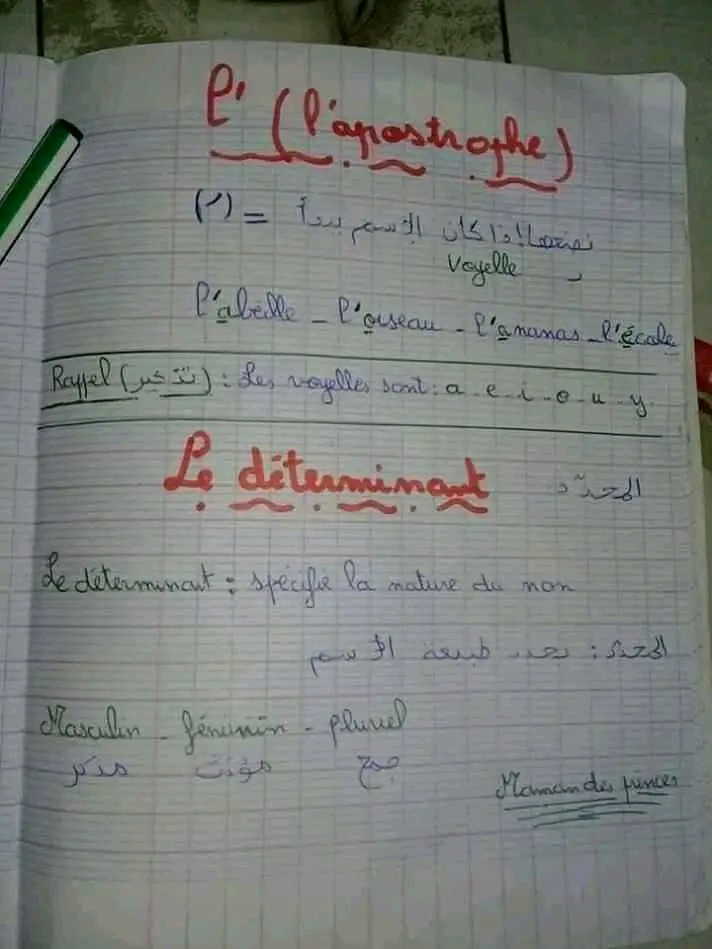 l' (l'apostrophe)
(') = نضعها إذا كان الإسم يبدأ
بـ voyelle
l'abeille - l'oiseau - l'ananas - l'école
Rappel (تذكير) : Les voyelles sont : a - e - i - o - u - y
Le déterminant المحدد
Le déterminant : spécifie la nature du nom
المحدد : يحدد طبيعة الإسم
Masculin - féminin - pluriel
مذكر مؤنث جمع
Maman des princes